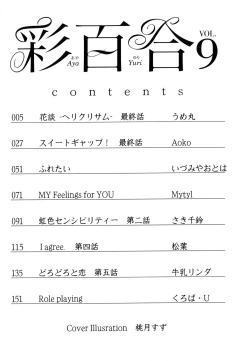 彩百合 VOL. 9
あや Aya ゆり Yuri
contents
005 花談 -ヘリクリサム- 最終話 うめ丸
027 スイートギャップ！ 最終話 Aoko
051 ふれたい いづみやおとは
071 MY Feelings for YOU Mytyl
091 虹色センシビリティー 第二話 さき千鈴
115 I agree. 第四話 松葉
135 どろどろと恋 第五話 牛乳リンダ
151 Role playing くろば・U
Cover Illusration 桃月すず